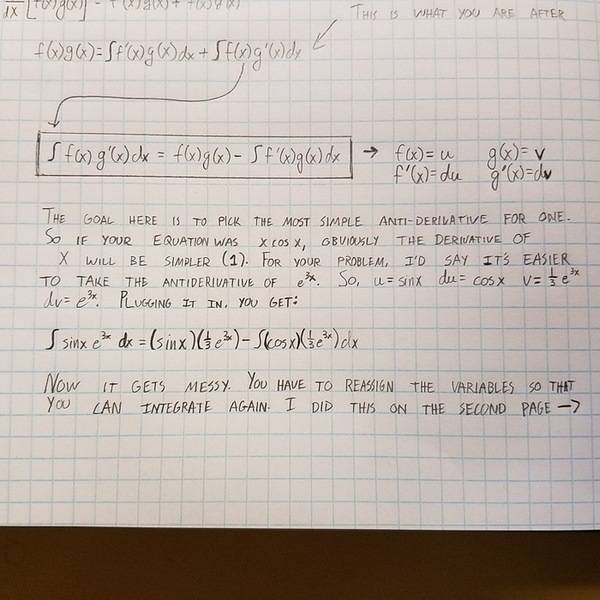 dx [f(x)g(x)] = f'(x)g(x) + f(x)g'(x)
THIS IS WHAT YOU ARE AFTER
f(x)g(x)=∫f'(x)g(x)dx + ∫f(x)g'(x)dx
∫f(x)g'(x)dx = f(x)g(x) - ∫f'(x)g(x)dx → f(x)=u g(x)=v
f'(x)=du g'(x)=dv
THE GOAL HERE IS TO PICK THE MOST SIMPLE ANTI-DERIVATIVE FOR ONE.
SO IF YOUR EQUATION WAS x cos x, OBVIOUSLY THE DERIVATIVE OF
X WILL BE SIMPLER (1). FOR YOUR PROBLEM, I'D SAY IT'S EASIER
TO TAKE THE ANTIDERIVATIVE OF e^3x. SO, u=sinx du=cosx v=1/3 e^3x
dv=e^3x. PLUGGING IT IN, YOU GET:
∫sinx e^3x dx = (sinx)(1/3 e^3x) - ∫(cosx)(1/3 e^3x)dx
NOW IT GETS MESSY. YOU HAVE TO REASSIGN THE VARIABLES SO THAT
YOU CAN INTEGRATE AGAIN. I DID THIS ON THE SECOND PAGE →